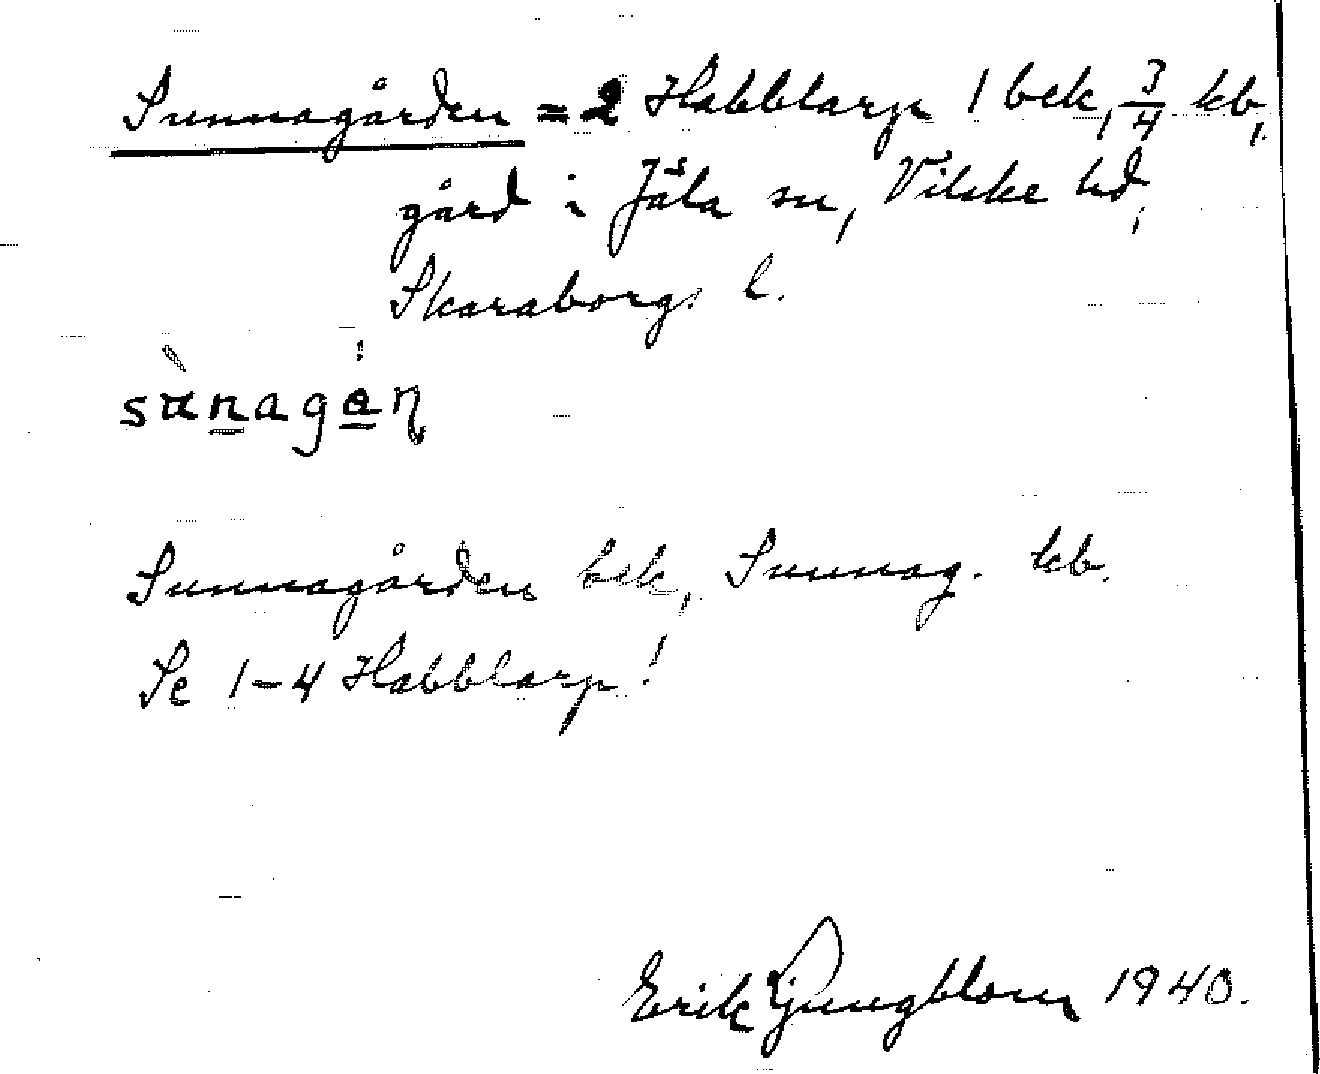 Sunnagården = 2 Habblarp 1 bek, 3/4 kb,
gård i Jäla sn, Vilske hd,
Skaraborgs l.
sùnagån
Sunnagården bek, Sunnag. kb.
Se 1-4 Habblarp!
Erik Ljungblom 1940.